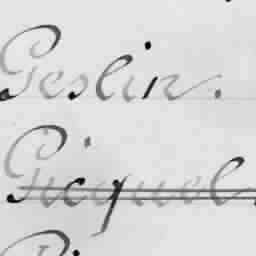 Geslin.
Gicquel.